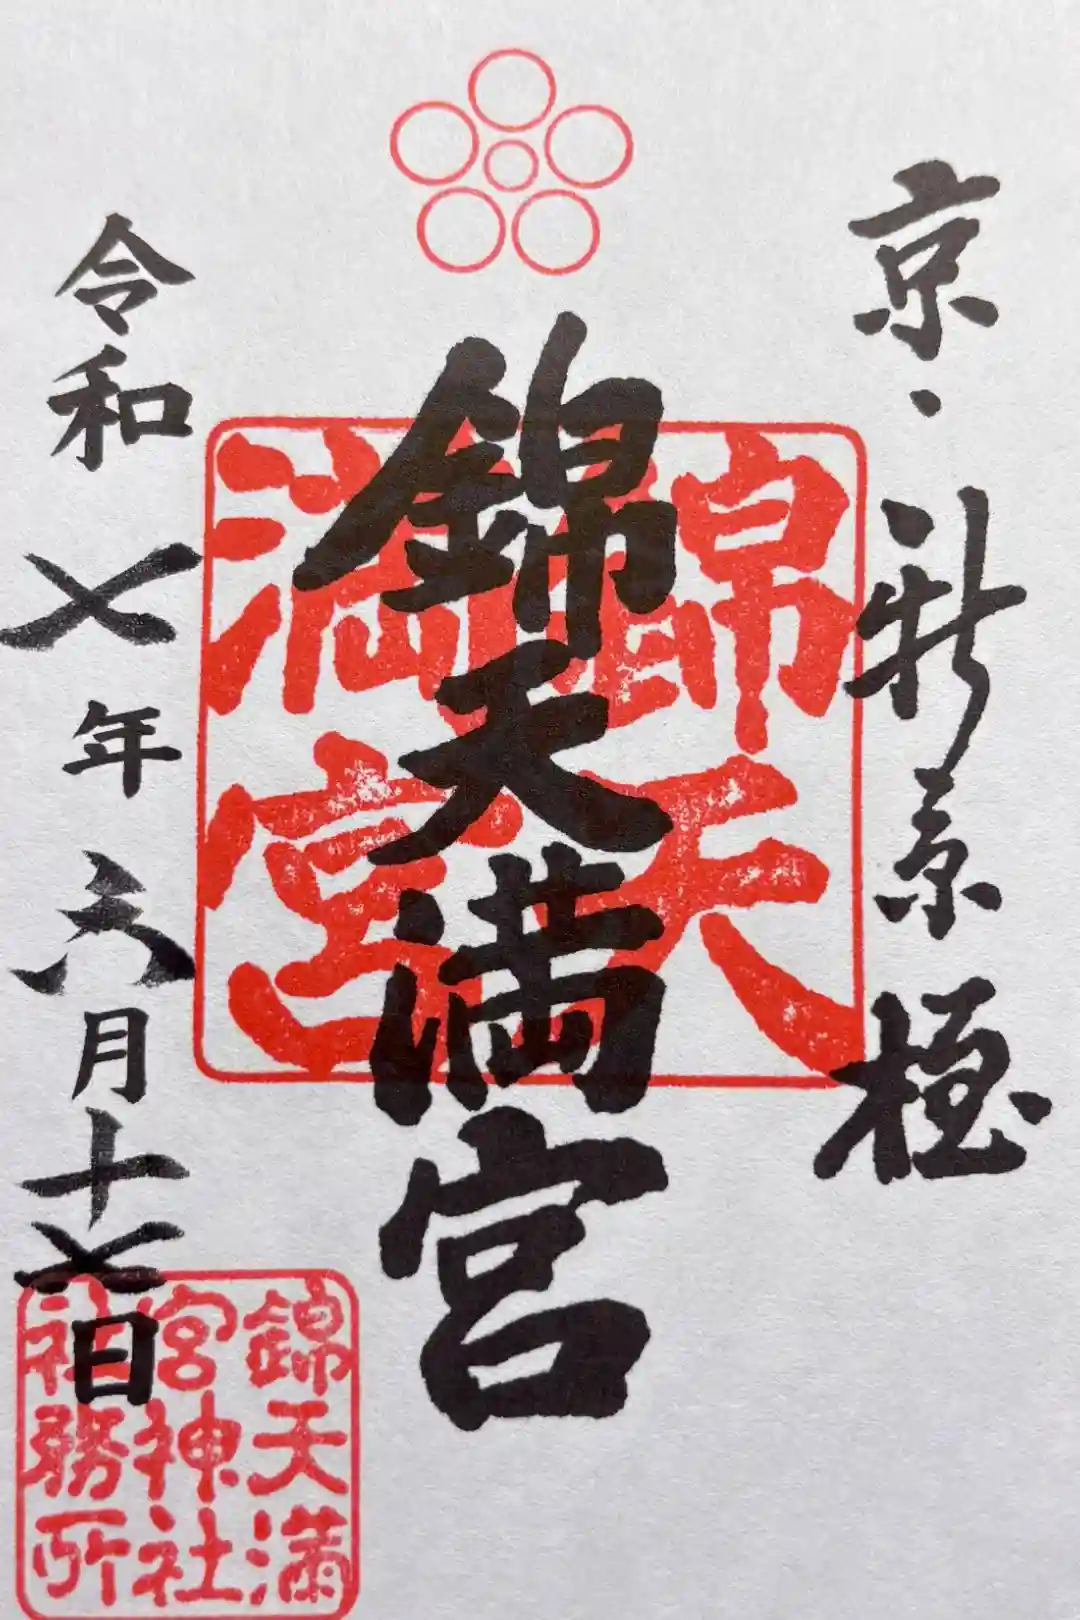 京・新京極
錦天満宮
錦天
満宮
令和七年六月十七日
錦天満
宮神社
社務所